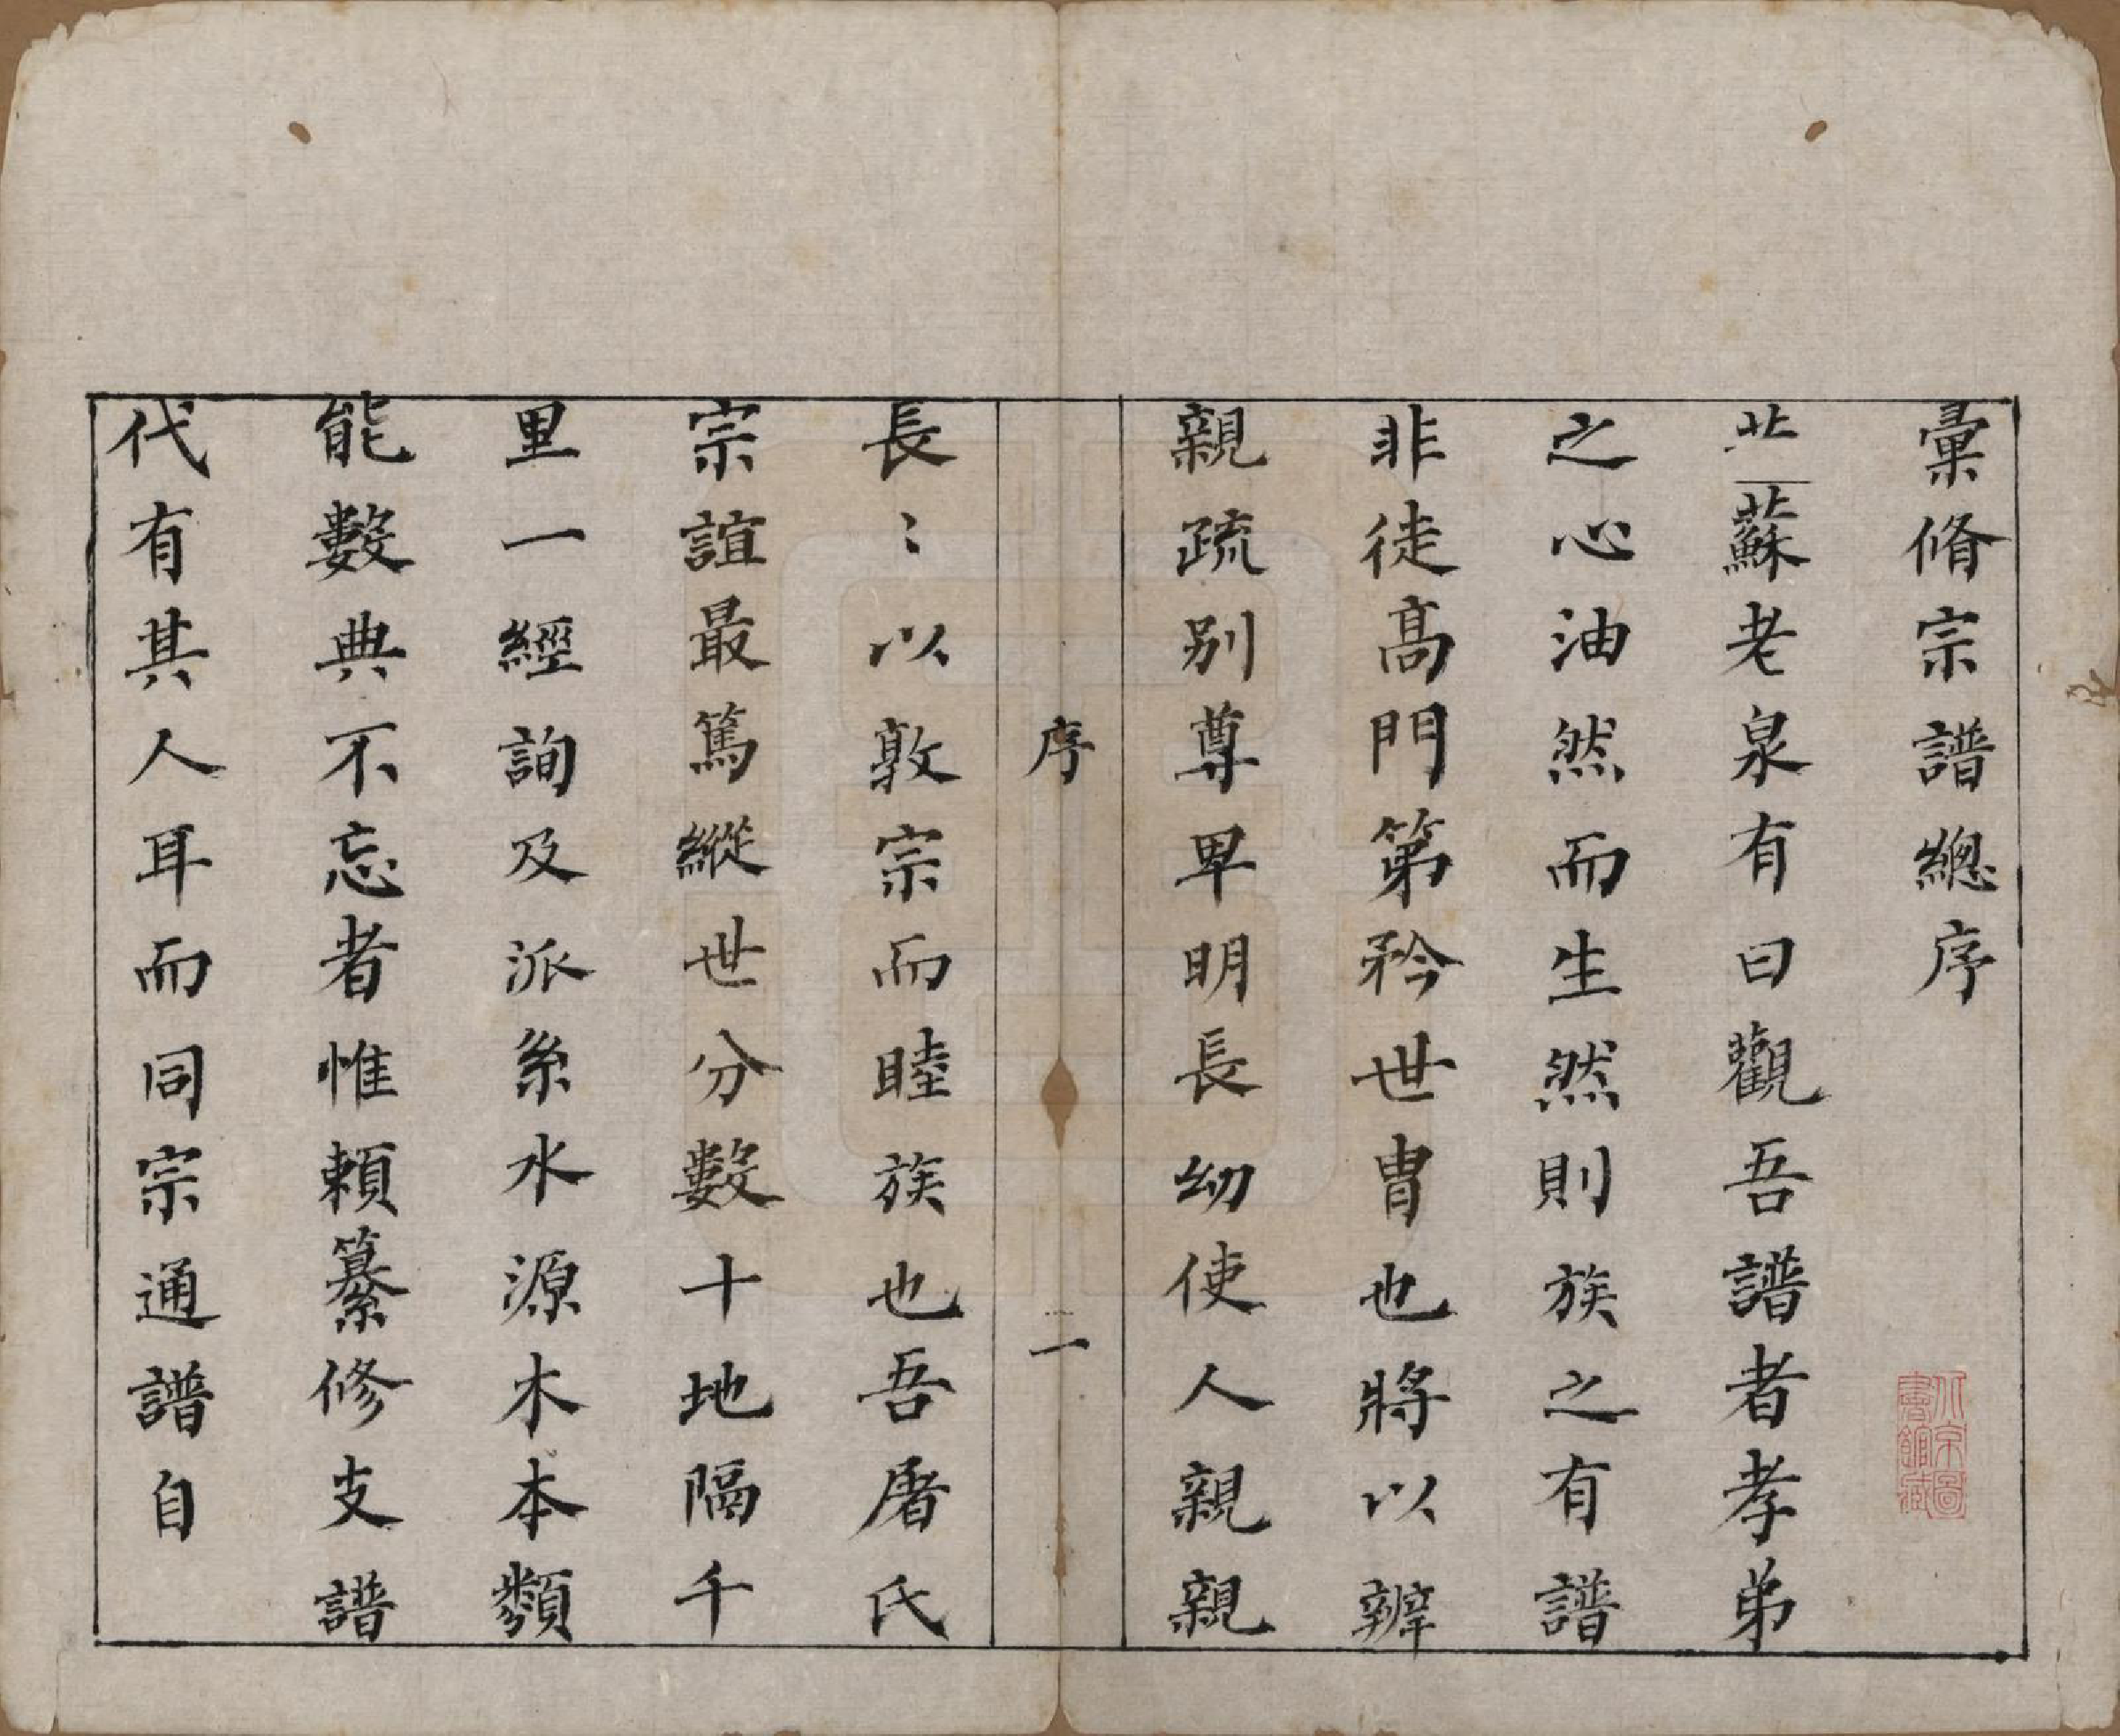 彙脩宗譜總序
昔蘇老泉有曰觀吾譜者孝弟
之心油然而生然則族之有譜
非徒高門第矜世胄也將以辨
親疏別尊卑明長幼使人親親
序
二
長〻以敦宗而睦族也吾屠氏
宗誼最篤縱世分數十地隔千
里一經詢及派系水源木本類
能數典不忘者惟賴纂修支譜
代有其人耳而同宗通譜自